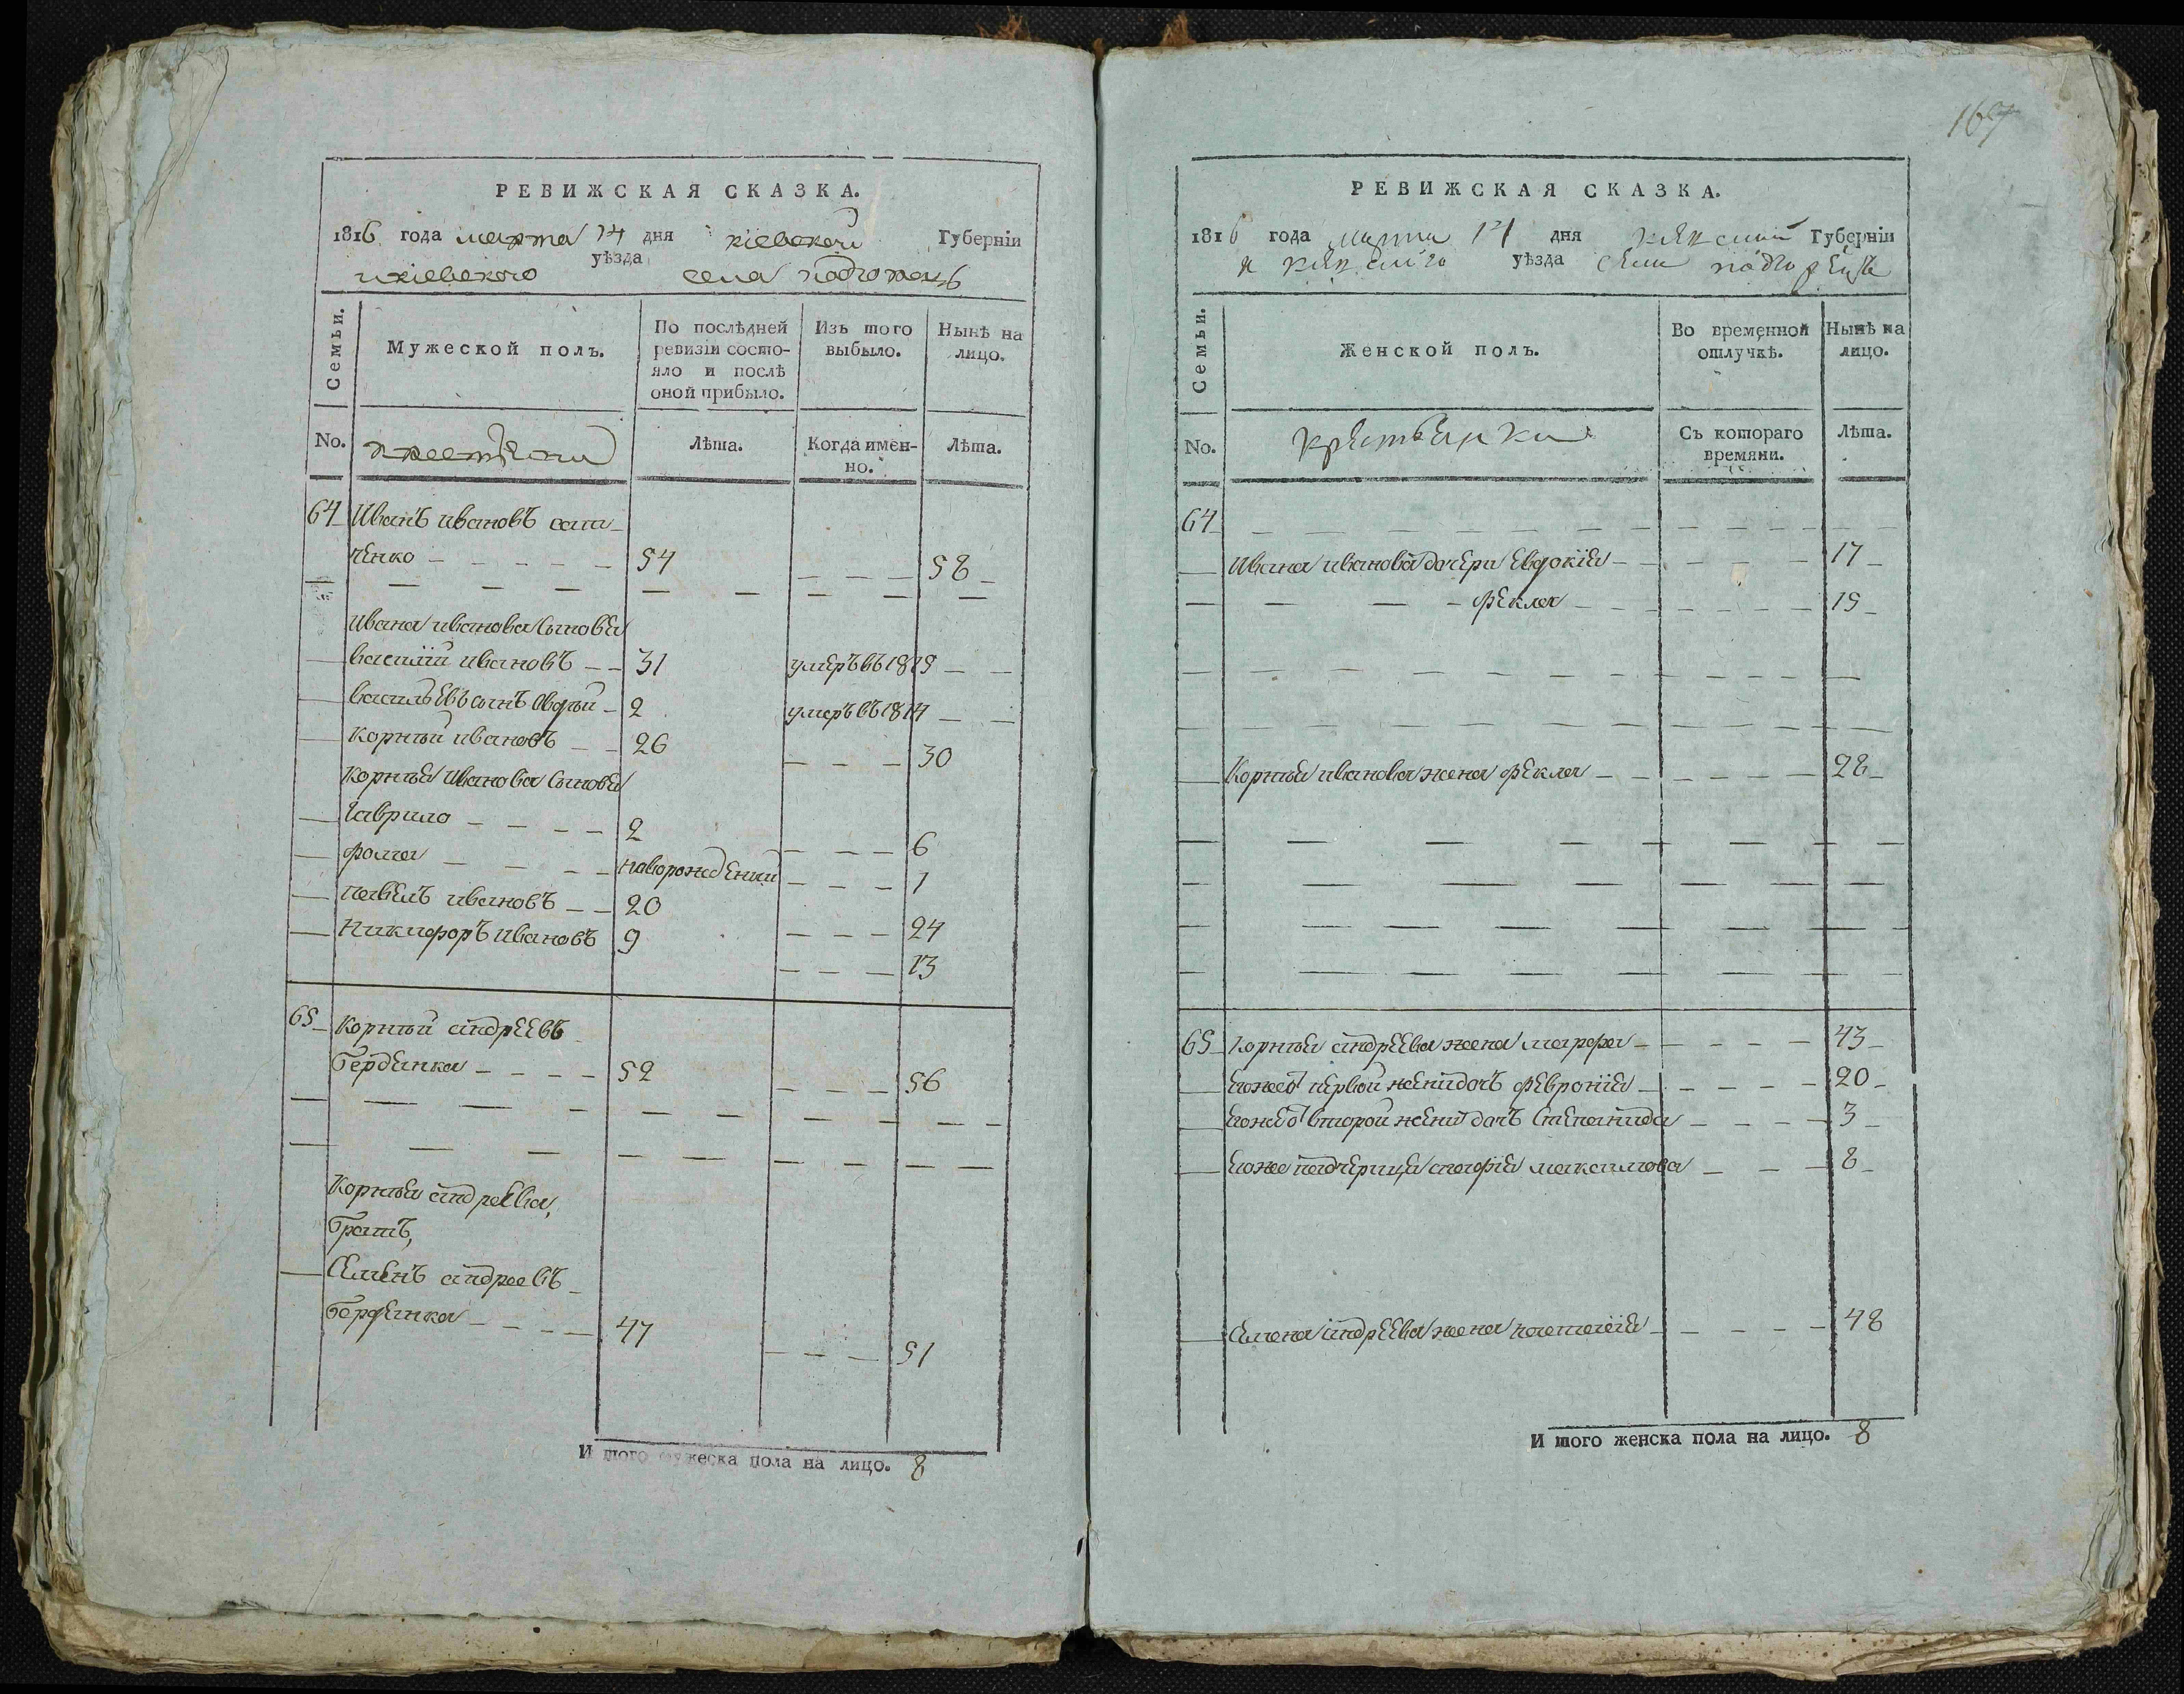 РЕВИЖСКАЯ СКАЗКА.
1816 года марта 14 дня киевской Губерніи
икиевского уѣзда села подгорецъ
Семьи.
Мужеской полъ.
По послѣдней ревизіи состояло и послѣ оной прибыло.
Изъ того выбыло.
Нынѣ на лицо.
No.
крестьяни
Лѣта.
Когда именно.
Лѣта.
64 Иванъ ивановъ
ченко 54 58
Ивана иванова сыновя
василий ивановъ 31 умеръ въ 1815
васильевъ сынъ Овдѣй 2 умеръ въ 1814
Корнѣй ивановъ 26 30
Корнѣя Иванова сыновя
Гаврило 2 6
фома новорожденій 1
павелъ ивановъ 20 24
Никифоръ ивановъ 9 13
65 Корнѣй андреевъ
берданка 52 56
Корнѣя андреева,
братъ,
Семенъ андреевъ
берданка 47 51
И того мужеска пола на лицо. 8
167
РЕВИЖСКАЯ СКАЗКА.
1816 года марта 14 дня киевской Губерніи
и киевского уѣзда села подгорецъ
Семьи.
Женской полъ.
Во временной отлучкѣ.
Нынѣ на лицо.
No.
крестьянки
Съ котораго времяни.
Лѣта.
64
Ивана иванова дочери евдокія 17
фекла 15
Корнѣя иванова жена фекла 28
65 Корнѣя андреева жена марфа 43
егожеот первой жени дочъ феврония 20
егожеот второй жени дочъ степанида 3
егоже падчерица агафія максимова 8
Семена андреева жена настасия 48
И того женска пола на лицо. 8